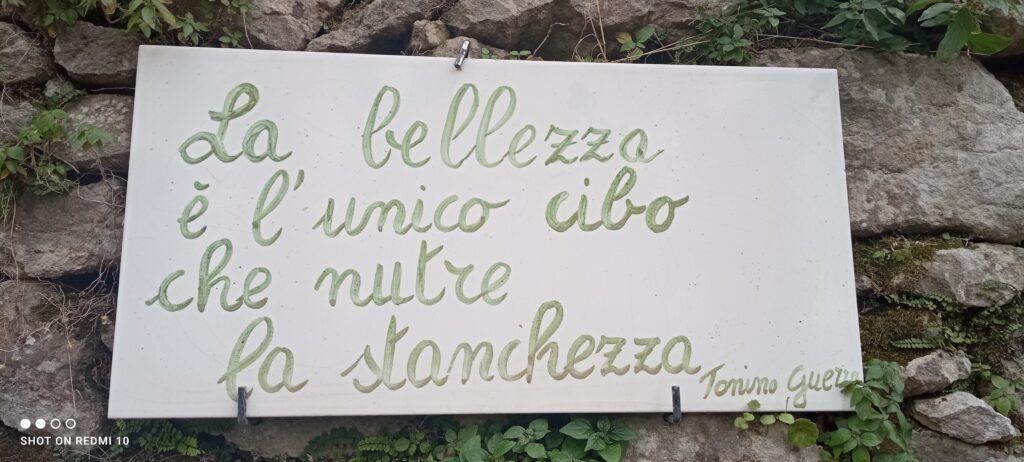 La bellezza
è l'unico cibo
che nutre
la stanchezza
Tonino Guerra
SHOT ON REDMI 10